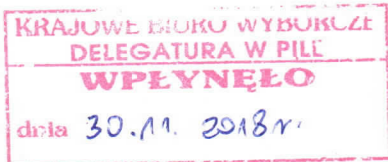 KRAJOWE BIURO WYBORCZE
DELEGATURA W PILE
WPŁYNĘŁO
dnia 30.11. 2018r.